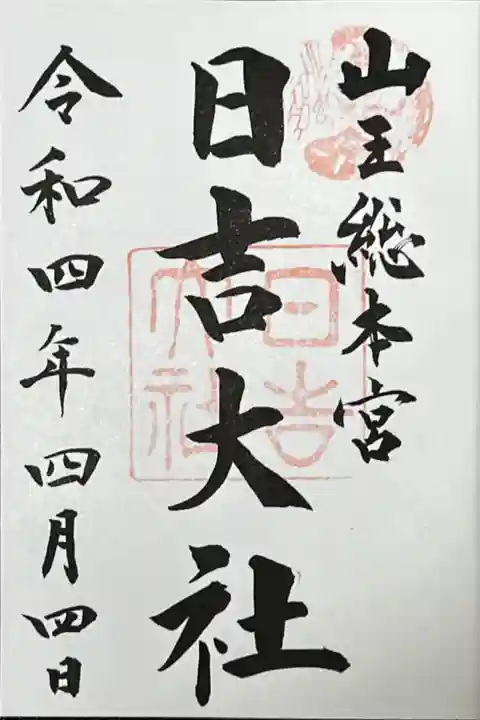 山王総本宮
日吉大社
日吉大社
令和四年四月四日